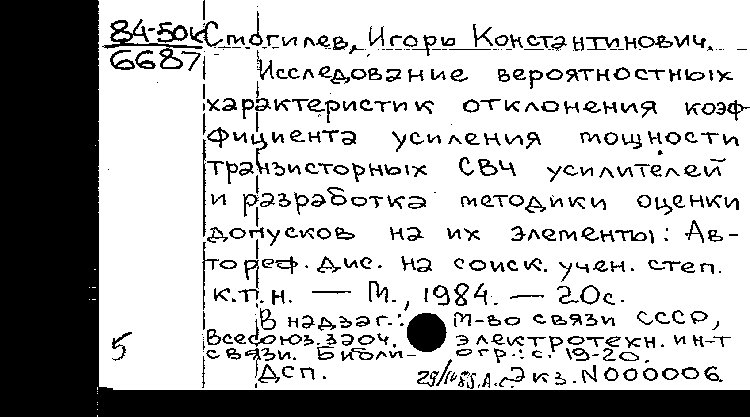 84-50к
6687
Смогилев, Игорь Константинович.
Исследование вероятностных
характеристик отклонения коэф-
фициента усиления мощности
транзисторных СВЧ усилителей
и разработка методики оценки
допусков на их элементы: Ав-
тореф. дис. на соиск. учен. степ.
к.т.н. — М., 1984. — 20с.
В надзаг.: М-во связи СССР,
Всесоюз. заоч. электротехн. ин-т
связи. Библиогр.: с. 19-20.
5
ДСП. Экз. N000006